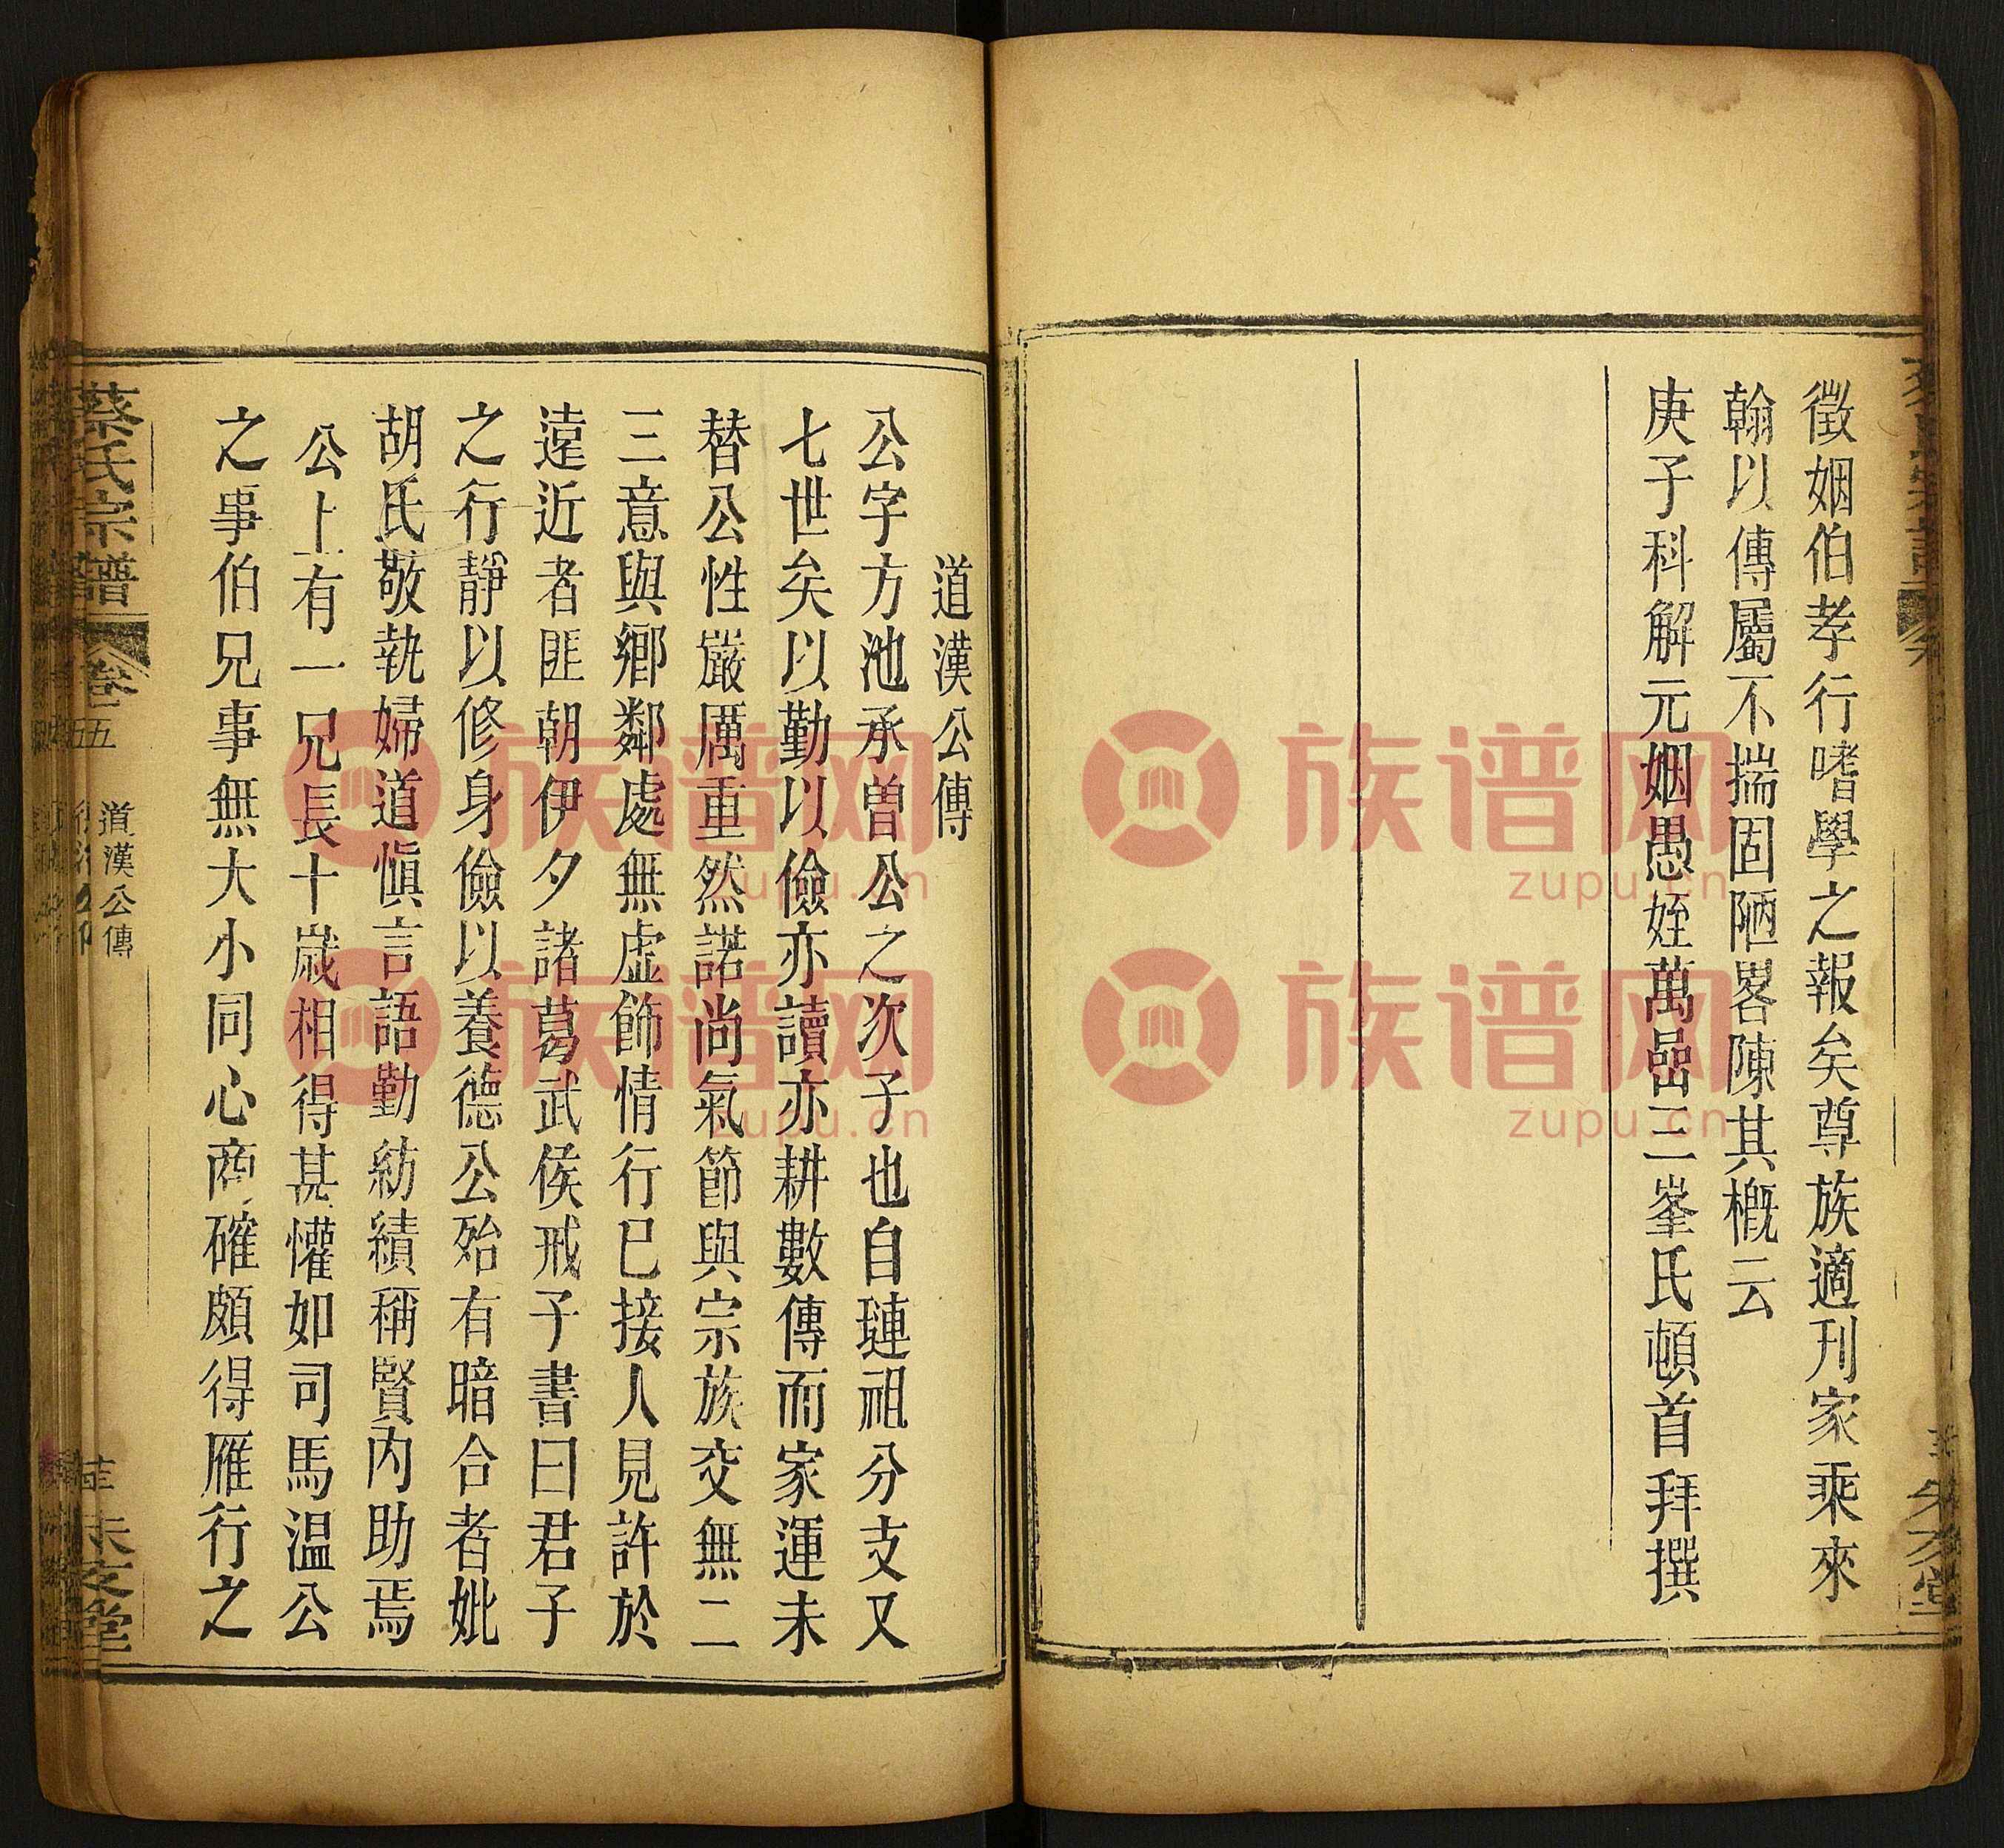 徵姻伯孝行嗜學之報矣尊族適刊家乘來
翰以傳屬不揣固陋畧陳其槪云
庚子科解元姻愚姪萬嵒三峯氏頓首拜撰
道漢公傳
公字方池承曾公之次子也自璉祖分支又
七世矣以勤以儉亦讀亦耕數傳而家運未
替公性嚴厲重然諾尚氣節與宗族交無二
三意與鄉鄰處無虛飾情行已接人見許於
遠近者匪朝伊夕諸葛武侯戒子書曰君子
之行靜以修身儉以養德公殆有暗合者妣
胡氏敬執婦道愼言語勤紡績稱賢內助焉
公上有一兄長十歲相得甚懽如司馬溫公
之事伯兄事無大小同心商確頗得雁行之
蔡氏宗譜
卷五
道漢公傳
族谱网
zupu.cn
族谱网
zupu.cn
族谱网
zupu.cn
族谱网
zupu.cn